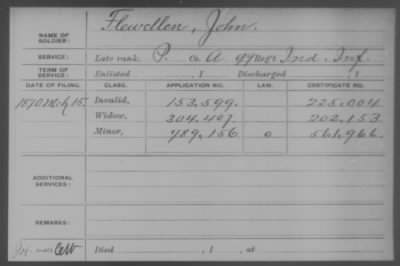 NAME OF SOLDIER: Flewellen, John.
SERVICE: Late rank, P. Co. A. 97 Reg't Ind. Inf.
TERM OF SERVICE: Enlisted , 1 Discharged , 1
DATE OF FILING. CLASS. APPLICATION NO. LAW. CERTIFICATE NO.
1870 Mch 15 Invalid, 153.599. 225.004
Widow, 304.407. 202.153
Minor, 789.156 0 561.966
ADDITIONAL SERVICES:
REMARKS:
Died , 1 , at